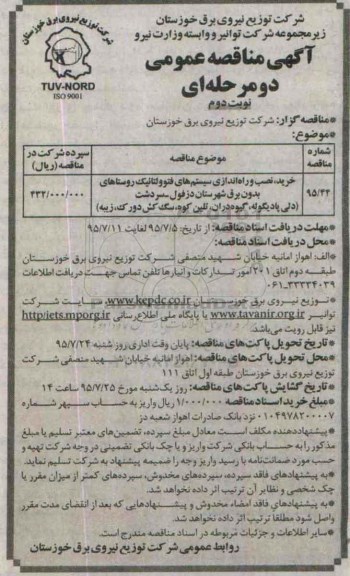 شرکت توزیع نیروی برق خوزستان
زیرمجموعه شرکت توانیر و وابسته وزارت نیرو
شرکت توزیع نیروی برق خوزستان
TUV-NORD
ISO 9001
آگهی مناقصه عمومی
دو مرحله‌ای
نوبت دوم
●مناقصه گزار: شرکت توزیع نیروی برق خوزستان
●موضوع:
شماره مناقصه
موضوع مناقصه
سپرده شرکت در مناقصه (ریال)
۹۵/۴۴
خرید، نصب و راه‌اندازی سیستم‌های فتوولتائیک روستاهای
بدون برق شهرستان دزفول_سردشت
(دلی پادیگوله، گیوه‌دران، تلین کوه، سگ کش دورک، زیبه)
۴۳۲/۰۰۰/۰۰۰
●مهلت دریافت اسناد مناقصه: از تاریخ: ۹۵/۷/۵ لغایت ۹۵/۷/۱۱
●محل دریافت اسناد مناقصه:
●الف: اهواز امانیه خیابان شهید منصفی شرکت توزیع نیروی برق خوزستان
طبقه دوم اتاق ۲۰۱ امور تدارکات و انبارها تلفن تماس جهت دریافت اطلاعات
۰۶۱_۳۳۳۳۴۰۳۹
توزیع نیروی برق خوزستان www.kepdc.co.ir سایت شرکت
توانیر www.tavanir.org.ir یا پایگاه ملی اطلاع‌رسانی http/iets.mporg.ir
نیز قابل رویت می‌باشد.
●تاریخ تحویل پاکت‌های مناقصه: پایان وقت اداری روز شنبه ۹۵/۷/۲۴
●محل تحویل پاکت‌های مناقصه: اهواز امانیه خیابان شهید منصفی شرکت
توزیع نیروی برق خوزستان طبقه اول اتاق ۱۱۱
●تاریخ گشایش پاکت‌های مناقصه: روز یک‌شنبه مورخ ۹۵/۷/۲۵ ساعت ۱۴
●مبلغ خرید اسناد مناقصه ۱/۰۰۰/۰۰۰ ریال واریز به حساب سپهر شماره
۰۱۰۴۹۷۸۲۰۰۰۰۷ نزد بانک صادرات اهواز شعبه در
●پیشنهاددهنده مکلف است معادل مبلغ سپرده، تضمین‌های معتبر تسلیم یا مبلغ
مذکور را به حساب بانکی شرکت واریز و یا چک بانکی تضمینی در وجه شرکت تهیه و
حسب مورد ضمانت‌نامه یا رسید واریز وجه را ضمیمه پیشنهاد به شرکت تسلیم نماید.
●به پیشنهادهای فاقد سپرده، سپرده‌های مخدوش، سپرده‌های کمتر از میزان مقرر یا
چک شخصی و نظایر آن ترتیب اثر داده نخواهد شد.
●به پیشنهادهای فاقد امضاء مخدوش و پیشنهادهایی که بعد از انقضای مدت مقرر
واصل شود مطلقا ترتیب اثر داده نخواهد شد.
●سایر اطلاعات و جزئیات مربوطه در اسناد مناقصه مندرج است.
روابط عمومی شرکت توزیع نیروی برق خوزستان